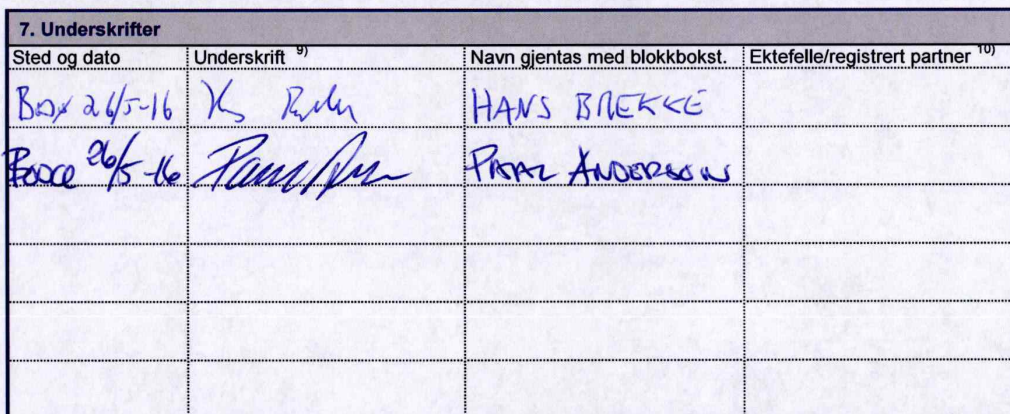 7. Underskrifter
Sted og dato Underskrift 9) Navn gjentas med blokkbokst. Ektefelle/registrert partner 10)
26/5-16 HANS BREKKE
26/5-16 ANDERSON